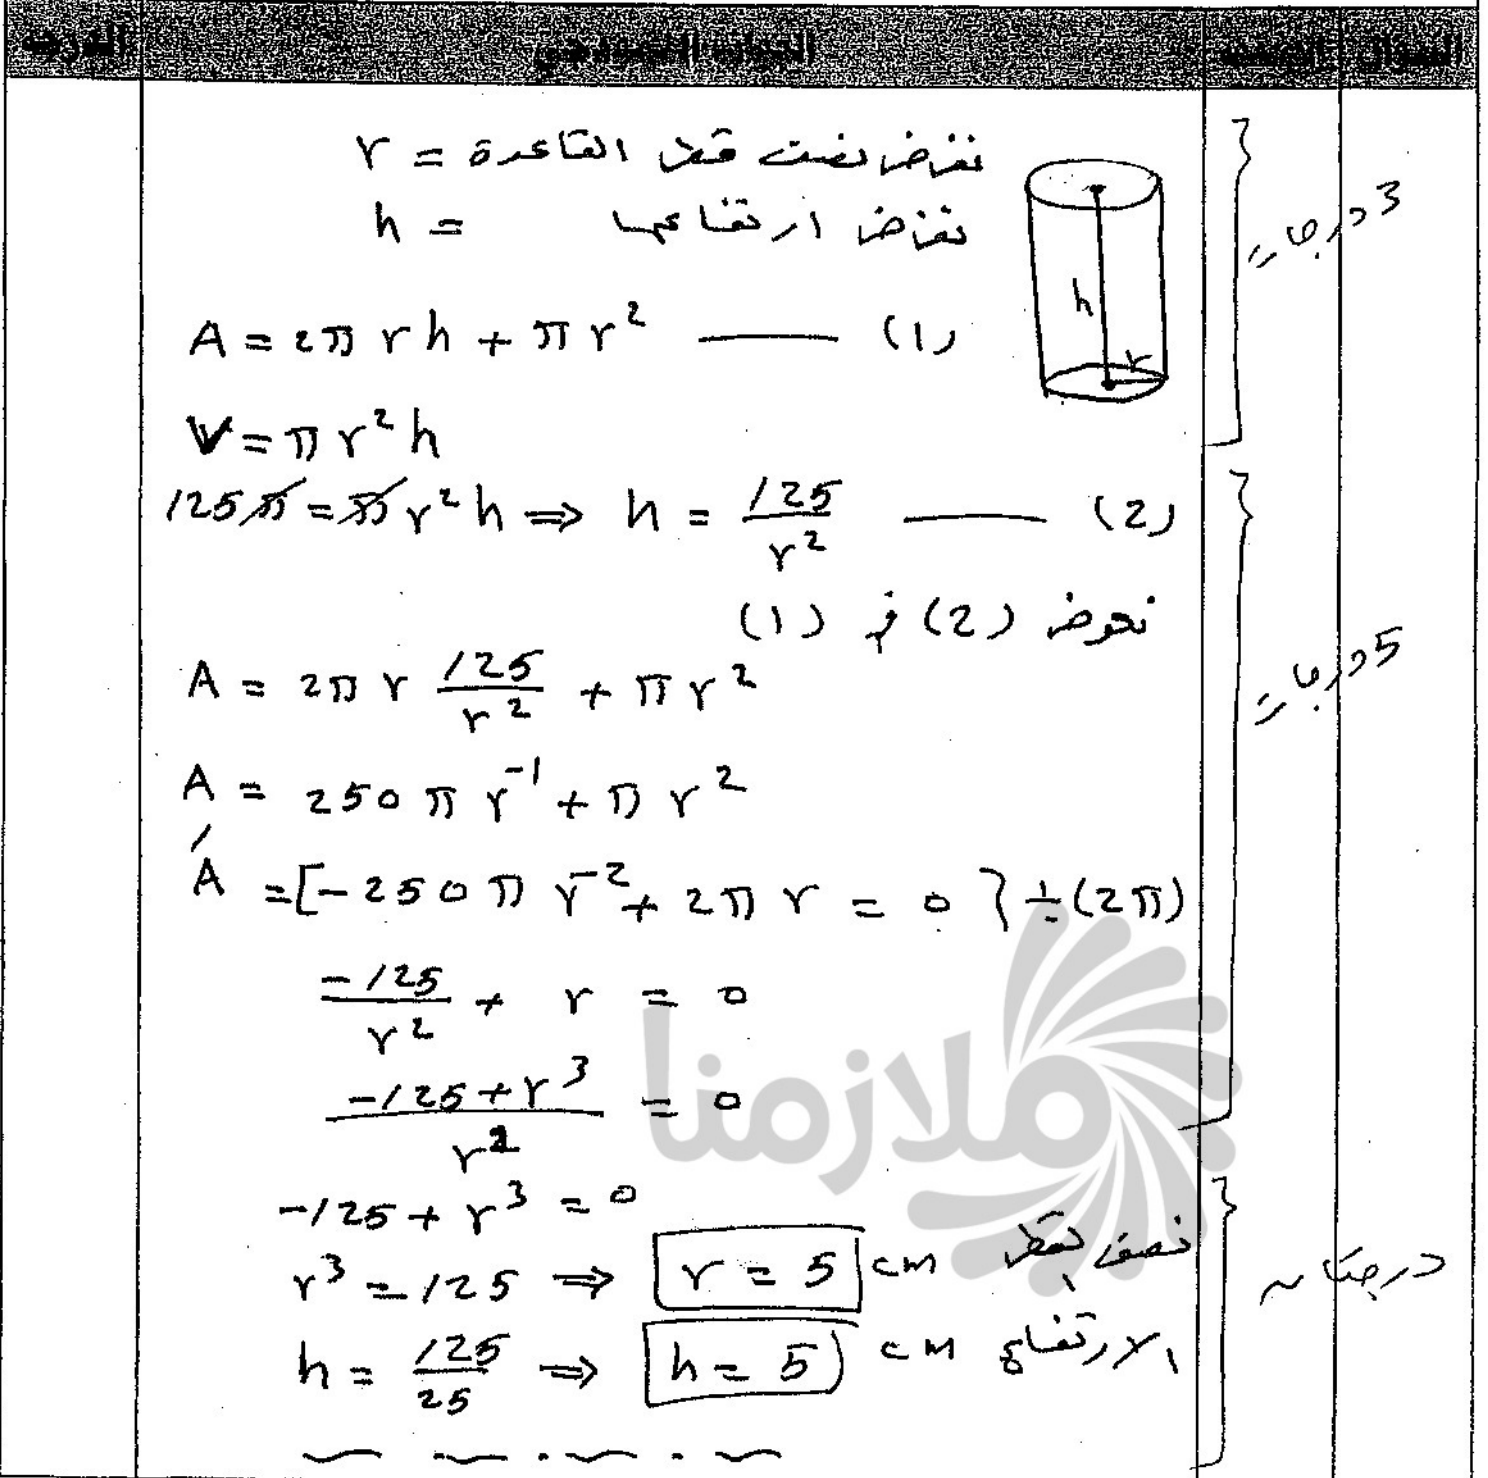 السؤال الجواب النموذجي الدرجة
نفرض نصف قطر القاعدة = r
نفرض ارتفاعها = h
3 درجات
h
r
A = 2π r h + π r² —— (1)
V = π r² h
125π = π r² h ⇒ h = 125/r² —— (2)
نعوض (2) في (1)
5 درجات
A = 2π r 125/r² + π r²
A = 250 π r⁻¹ + π r²
A′ = [-250 π r⁻² + 2π r = 0] ÷ (2π)
-125/r² + r = 0
(-125 + r³)/r² = 0
ملازمنا
-125 + r³ = 0
r³ = 125 ⇒ r = 5 cm نصف القطر
درجتان
h = 125/25 ⇒ h = 5 cm الارتفاع